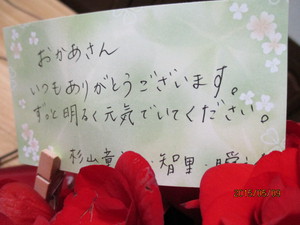 おかあさん
いつもありがとうございます。
ずっと明るく元気でいてください。
杉山 智里
2015/05/09